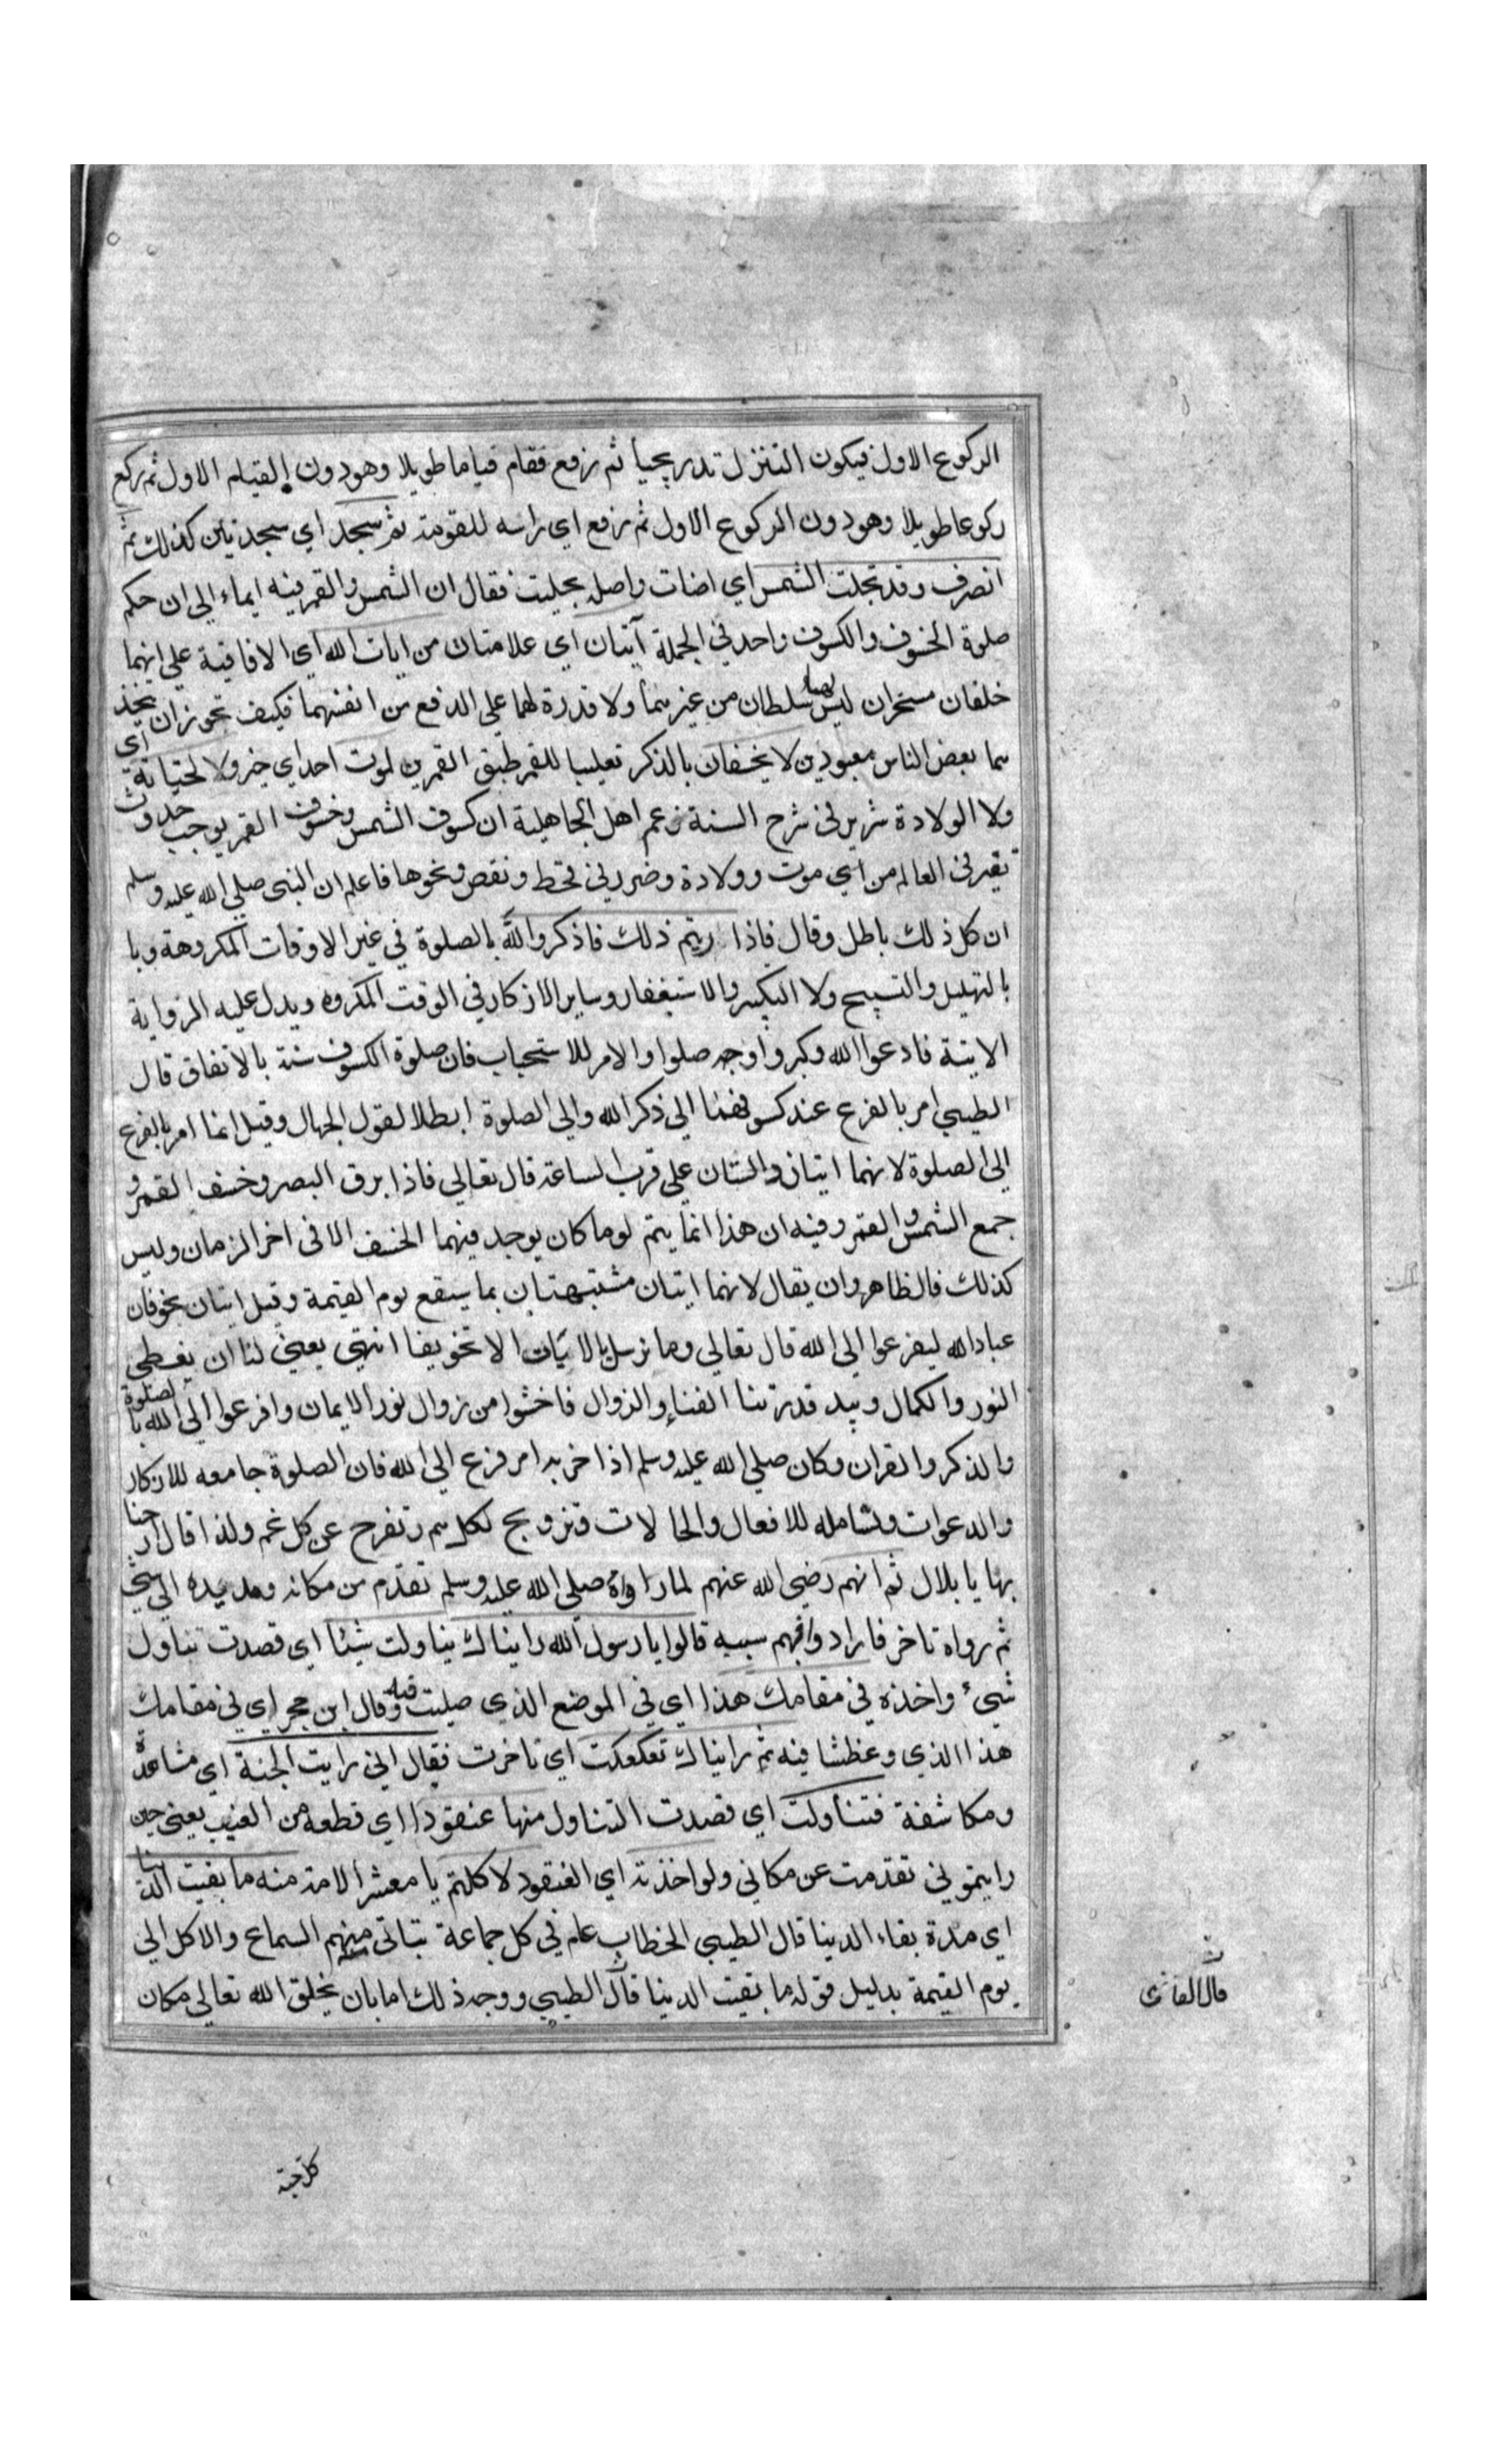 الركوع الاول فيكون التنزل تدريجيا ثم رفع فقام قياما طويلا وهو دون القيام الاول ثم ركع
ركوعا طويلا وهو دون الركوع الاول ثم رفع اي راسه للقومة ثم سجد اي سجدتين كذلك ثم
انصرف وقد تجلت الشمس اي اضات واصله تجليت فقال ان الشمس والقمر فيه ايماء الي ان حكم
صلوة الخسوف والكسوف واحد في الجملة آيتان اي علامتان من ايات الله اي الافاقية علي انهما
خلقان مسخران ليس لهما سلطان من غيرهما ولا قدرة لهما علي الدفع من انفسهما فكيف يجوز ان يتخذ
هما بعض الناس معبودين لا يخسفان بالذكر تغليبا للقمر طبق القمرين لموت احد اي خير ولا لحياته اي
ولا الولادة شرير في شرح السنة زعم اهل الجاهلية ان كسوف الشمس وخسوف القمر يوجب حدوث
تغير في العالم من اي موت وولادة وضرر في قحط ونقص ونحوها فاعلم ان النبي صلي الله عليه وسلم
ان كل ذلك باطل وقال فاذا رءيتم ذلك فاذكروا الله بالصلوة في غير الاوقات المكروهة وبا
بالتهليل والتسبيح ولا التكبير والاستغفار وساير الاذكار في الوقت المكروه ويدل عليه الرواية
الاتية فادعوا الله وكبروا وجه صلوا والامر للاستحباب فان صلوة الكسوف سنة بالاتفاق قال
الطيبي امر بالفزع عند كسوفهما الي ذكر الله والي الصلوة ابطالا لقول الجهال وقيل انما امر بالفزع
الي الصلوة لانهما ايتان دالتان علي قرب الساعة قال تعالي فاذا برق البصر وخسف القمر و
جمع الشمس والقمر وفيه ان هذا انما يتم لو ما كان يوجد فيهما الخسف الا في اخر الزمان وليس
كذلك فالظاهر ان يقال لانهما ايتان مشتبهتان بما سيقع يوم القيمة وقيل ايتان يخوفان
عباد الله ليفزعوا الي الله قال تعالي وما نرسل بالايات الا تخويفا انتهي يعني لنا ان يغطي
النور والكمال وبيد قدرتنا الفناء والزوال فاخشوا من زوال نور الايمان وافزعوا الي الله بالصلوة
والذكر والقران وكان صلي الله عليه وسلم اذا حزبه امر فزع الي الله فان الصلوة جامعه للاذكار
والدعوات وشامله للافعال والحالات وتزويج لكل هم وتفرح عن كل غم ولذا قال ارحنا
بها يا بلال ثم انهم رضي الله عنهم لما راوه صلي الله عليه وسلم تقدم من مكانه ومد يده الي شي
ثم رواه تاخر فاراد وافهم سببه قالوا يا رسول الله رايناك تناولت شيئا اي قصدت تناول
شيء واخذه في مقامك هذا اي في الموضع الذي صليت فيه وقال ابن حجر اي في مقامك
هذا الذي وعظتنا فيه ثم رايناك تكعكعت اي تاخرت فقال اني رايت الجنة اي مشاهدة
ومكاشفة فتناولت اي قصدت التناول منها عنقودا اي قطعه من العنب يعني حين
رايتموني تقدمت عن مكاني ولو اخذته اي العنقود لاكلتم يا معشر الامة منه ما بقيت الدنيا
اي مدة بقاء الدنيا قال الطيبي الخطاب عام في كل جماعة يتاتي منهم السماع والاكل الي
يوم القيمة بدليل قوله ما بقيت الدنيا قال الطيبي ووجه ذلك اما بان يخلق الله تعالي مكان
قال القاضي
كل حبة